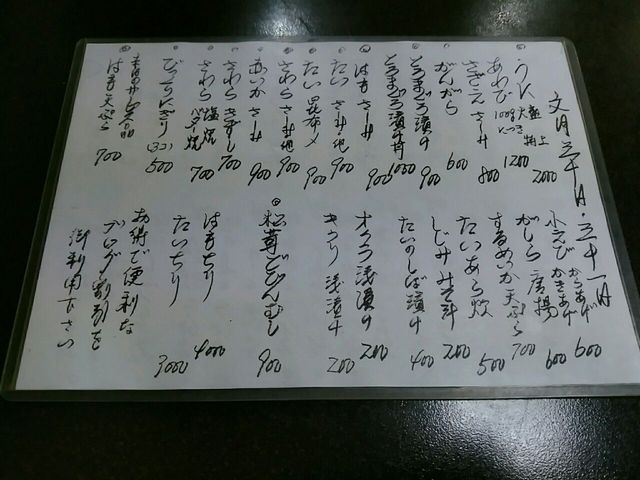 文月三十日・三十一日
うに 盛 2000
あわび 100g 1200
さごえ さしみ 800
がんがら 600
とろまぐろ漬け 900
とろまぐろ漬け丼 1000
はも さしみ 900
たい さしみ・地 900
たい 昆布〆 900
さわら さしみ地 900
あいか さしみ 900
さわら さずし 700
さわら 塩焼 バター焼 700
びっくりにぎり (3コ) 500
本日のサービス品
はも 天ぷら 700
小えび からあげ 600
かきあげ 600
がしら 唐揚 700
するめいか天ぷら
たいあら炊 500
しじみみそ汁 200
たいのしば漬け 400
オクラ浅漬け 200
キウリ 浅漬け 200
松茸どびんむし 900
はもちり 4000
たいちり 3000
お得で便利な
ブログ割引を
御利用下さい